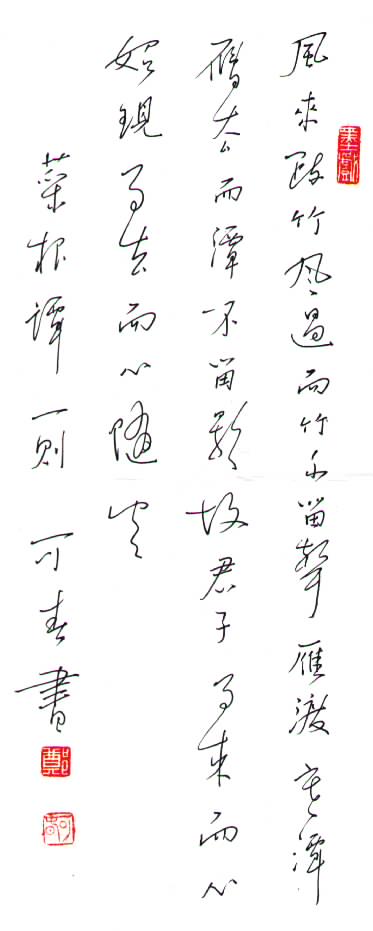 風來疎竹風過而竹不留聲雁渡寒潭
雁去而潭不留影故君子事來而心
始現事去而心隨空
菜根譚一則 可春書
鄭